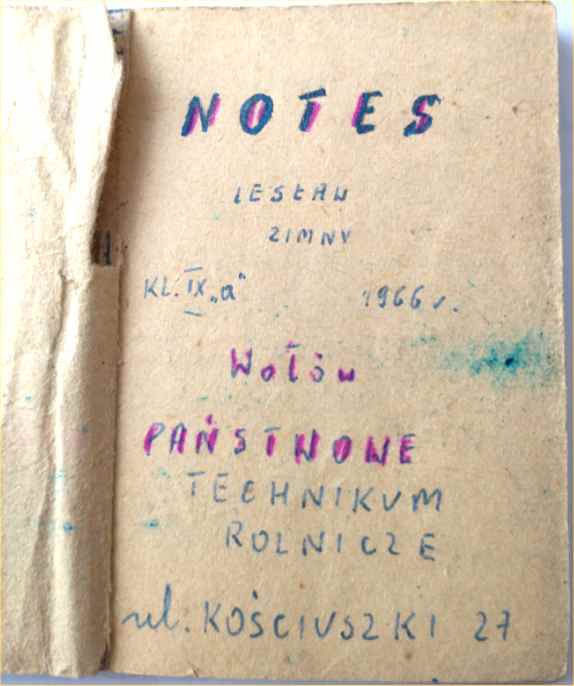 NOTES
LESŁAW
ZIMNY
KL. IX „a" 1966 r.
Wołów
PAŃSTWOWE
TECHNIKUM
ROLNICZE
ul. KOŚCIUSZKI 27